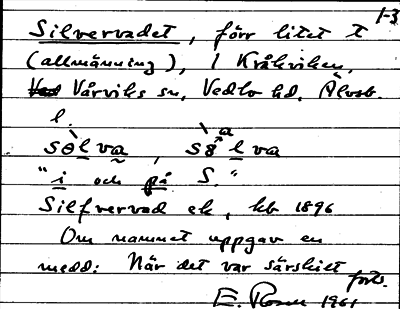 1-3
Silververadet, förr litet t
(allmänning), i Kråkviken,
Vårviks sn, Vedbo hd, Älvsb.
l.
sølva, sølva
"i och på S."
Silfververad ek, kb 1896
Om namnet uppgav en
medd: När det var särskilt
forts.
E. Rosen 1961